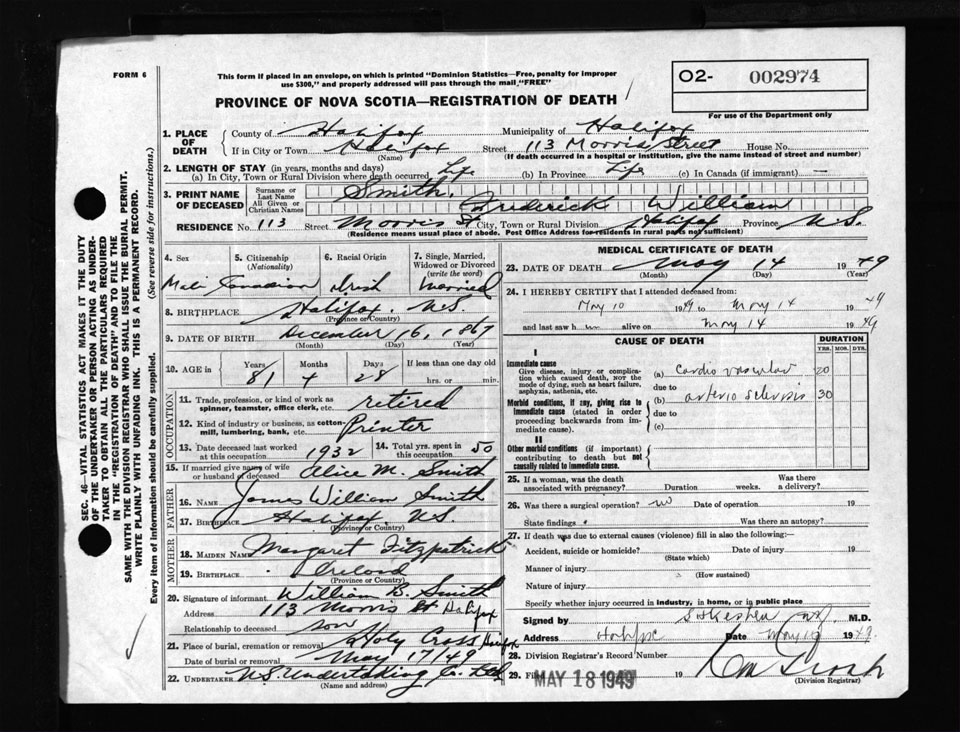 FORM 6
This form if placed in an envelope, on which is printed "Dominion Statistics—Free, penalty for improper
use $300," and properly addressed will pass through the mail "FREE"
O2- 002974
For use of the Department only
PROVINCE OF NOVA SCOTIA—REGISTRATION OF DEATH
1. PLACE OF DEATH County of Halifax Municipality of Halifax
If in City or Town Halifax (Name) Street 113 Morris Street House No.
(If death occurred in a hospital or institution, give the name instead of street and number)
2. LENGTH OF STAY (in years, months and days)
(a) In City, Town or Rural Division where death occurred Life (b) In Province Life (c) In Canada (if immigrant) —
3. PRINT NAME OF DECEASED Surname or Last Name Smith,
All Given or Christian Names Frederick William
RESIDENCE No. 113 Street Morris St City, Town or Rural Division Halifax Province N.S.
(Residence means usual place of abode. Post Office Address for residents in rural parts not sufficient)
4. Sex Male
5. Citizenship (Nationality) Canadian
6. Racial Origin Irish
7. Single, Married, Widowed or Divorced (write the word) Married
8. BIRTHPLACE Halifax N.S.
(Province or Country)
9. DATE OF BIRTH December 16, 1867
(Month) (Day) (Year)
10. AGE in Years 81 Months 4 Days 28 If less than one day old
hrs. or min.
OCCUPATION
11. Trade, profession, or kind of work as spinner, teamster, office clerk, etc. retired
12. Kind of industry or business, as cotton-mill, lumbering, bank, etc. Printer
13. Date deceased last worked at this occupation 1932
14. Total yrs. spent in this occupation 50
15. If married give name of wife or husband of deceased Alice M. Smith
FATHER
16. NAME James William Smith
17. BIRTHPLACE Halifax, N.S.
(Province or Country)
MOTHER
18. MAIDEN NAME Margaret Fitzpatrick
19. BIRTHPLACE Ireland
(Province or Country)
20. Signature of informant William B. Smith
Address 113 Morris St Halifax
Relationship to deceased son
21. Place of burial, cremation or removal Holy Cross Halifax
Date of burial or removal May 17/49
22. UNDERTAKER N.S. Undertaking Co. Ltd
(Name and address)
MEDICAL CERTIFICATE OF DEATH
23. DATE OF DEATH May 14 1949
(Month) (Day) (Year)
24. I HEREBY CERTIFY that I attended deceased from:
May 10 1949 to May 14 1949
and last saw him alive on May 14 1949
CAUSE OF DEATH
DURATION
YRS. MOS. DYS.
I
Immediate cause
Give disease, injury or complication which caused death, NOT the mode of dying, such as heart failure, asphyxia, asthenia, etc.
(a) Cardio vascular 20
due to
Morbid conditions, if any, giving rise to immediate cause (stated in order proceeding backwards from immediate cause).
(b) arterio sclerosis 30
due to
(c)
II
Other morbid conditions (if important) contributing to death but not causally related to immediate cause.
25. If a woman, was the death associated with pregnancy? Duration weeks. Was there a delivery?
26. Was there a surgical operation? no Date of operation 19
State findings Was there an autopsy?
27. If death was due to external causes (violence) fill in also the following:—
Accident, suicide or homicide? (State which) Date of injury 19
Manner of injury
(How sustained)
Nature of injury
Specify whether injury occurred in industry, in home, or in public place
Signed by M.D.
Address Date May 19 1949
28. Division Registrar's Record Number
29. Filed MAY 18 1949 19
(Division Registrar)
SEC. 46—VITAL STATISTICS ACT MAKES IT THE DUTY
OF THE UNDERTAKER OR PERSON ACTING AS UNDER-
TAKER TO OBTAIN ALL THE PARTICULARS REQUIRED
IN THE "REGISTRATION OF DEATH" AND TO FILE THE
SAME WITH THE DIVISION REGISTRAR WHO SHALL ISSUE THE BURIAL PERMIT.
WRITE PLAINLY WITH UNFADING INK. THIS IS A PERMANENT RECORD.
Every item of information should be carefully supplied. (See reverse side for instructions.)